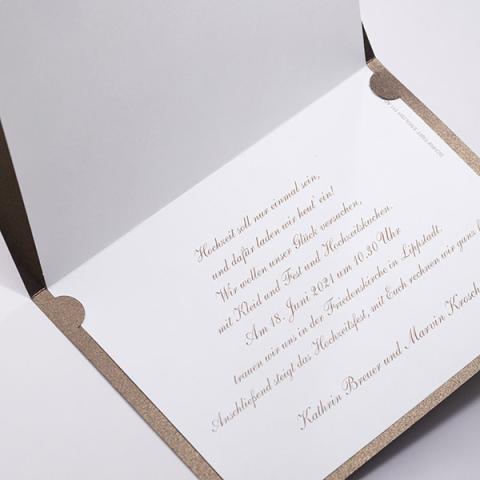 Hochzeit soll nur einmal sein,
und dafür laden wir heut' ein!
Wir wollen unser Glück versuchen,
mit Kleid und Fest und Hochzeitskuchen.
Am 18. Juni 2021 um 10.30 Uhr
trauen wir uns in der Friedenskirche in Lippstadt.
Anschließend steigt das Hochzeitsfest, mit Euch rechnen wir ganz
Kathrin Breuer und Marvin Krosch